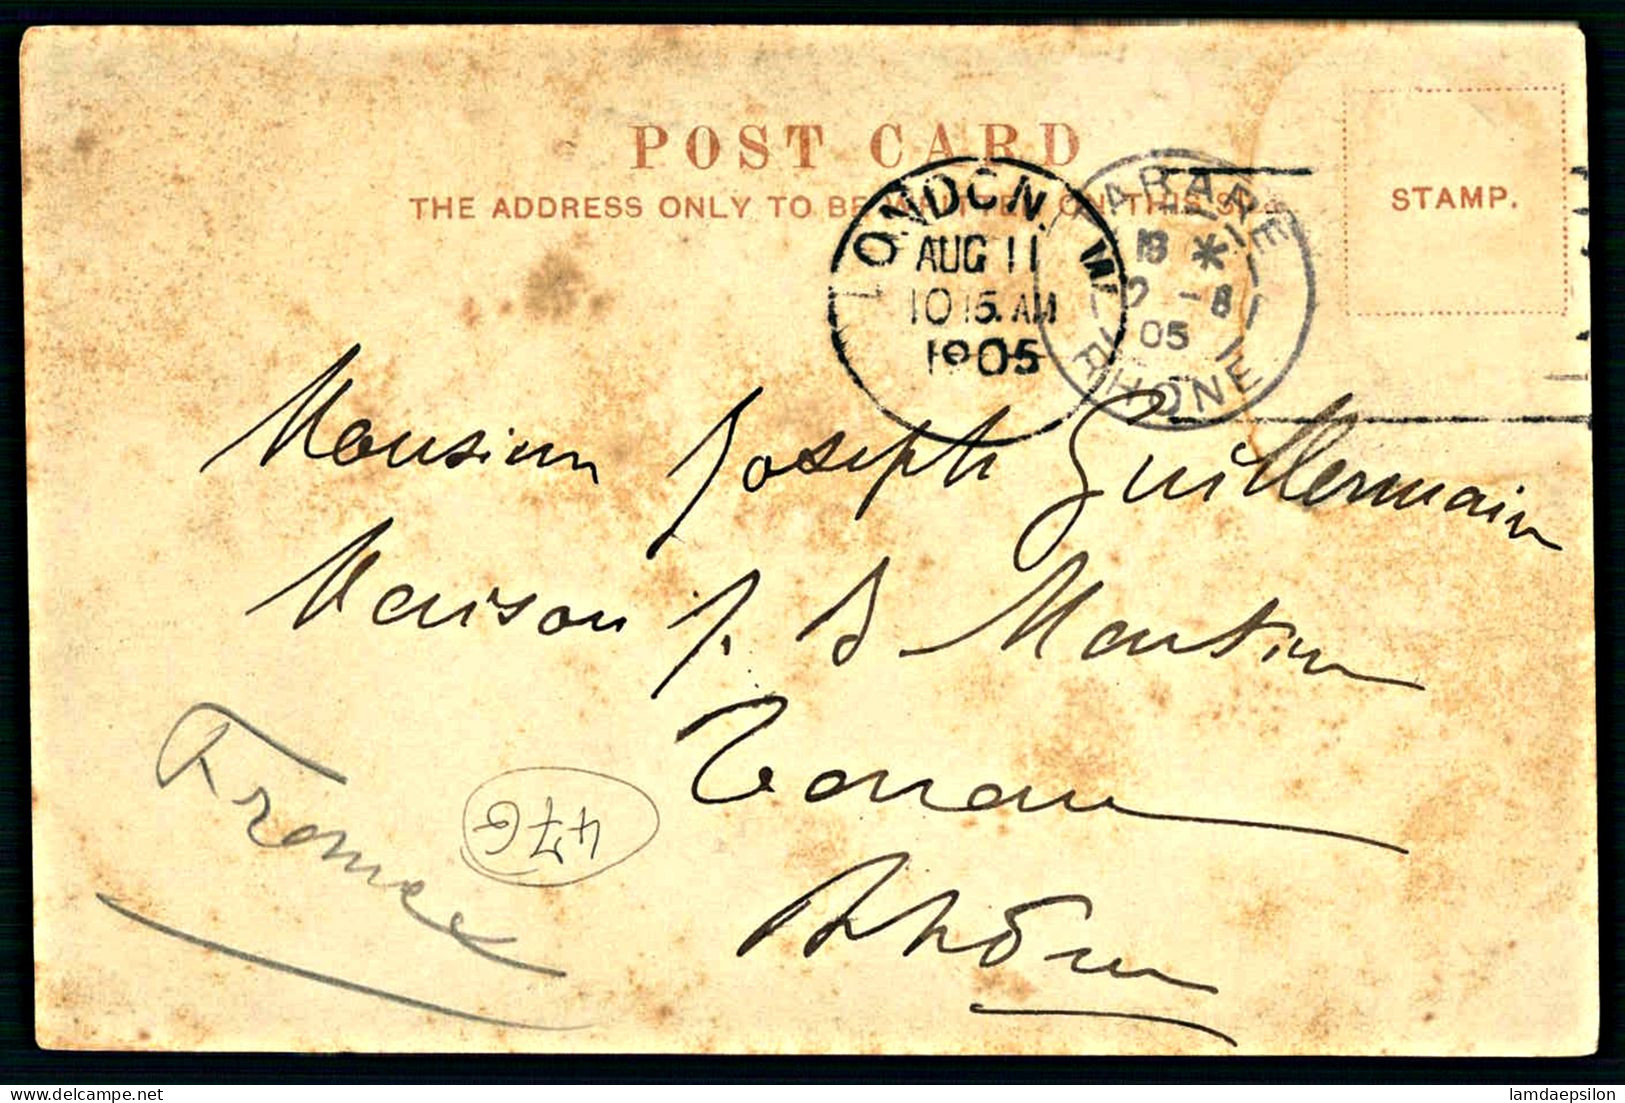 POST CARD
THE ADDRESS ONLY TO BE WRITTEN ON THIS SIDE
STAMP.
LONDON. W
AUG 11
10 15 AM
1905
TARARE
18 *
2 -8
05
RHONE
Monsieur Joseph Guillermain
Maison J. B Martin
Tarare
Rhône
France
476
lamdaepsilon